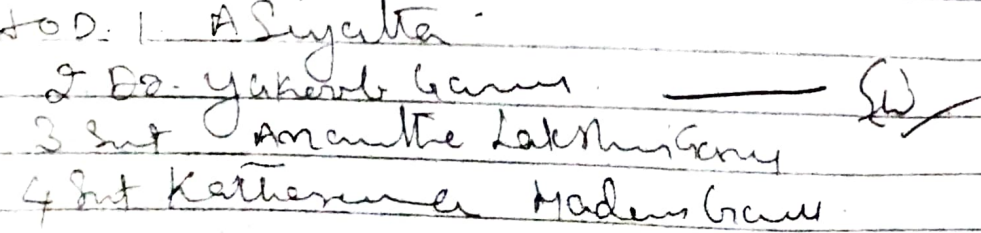 HOD. 1. A Sujatha
2 Dr. Yakoob Garu
3 Smt Anantha Lakshmi Garu
4 Smt Katherine Madam Garu